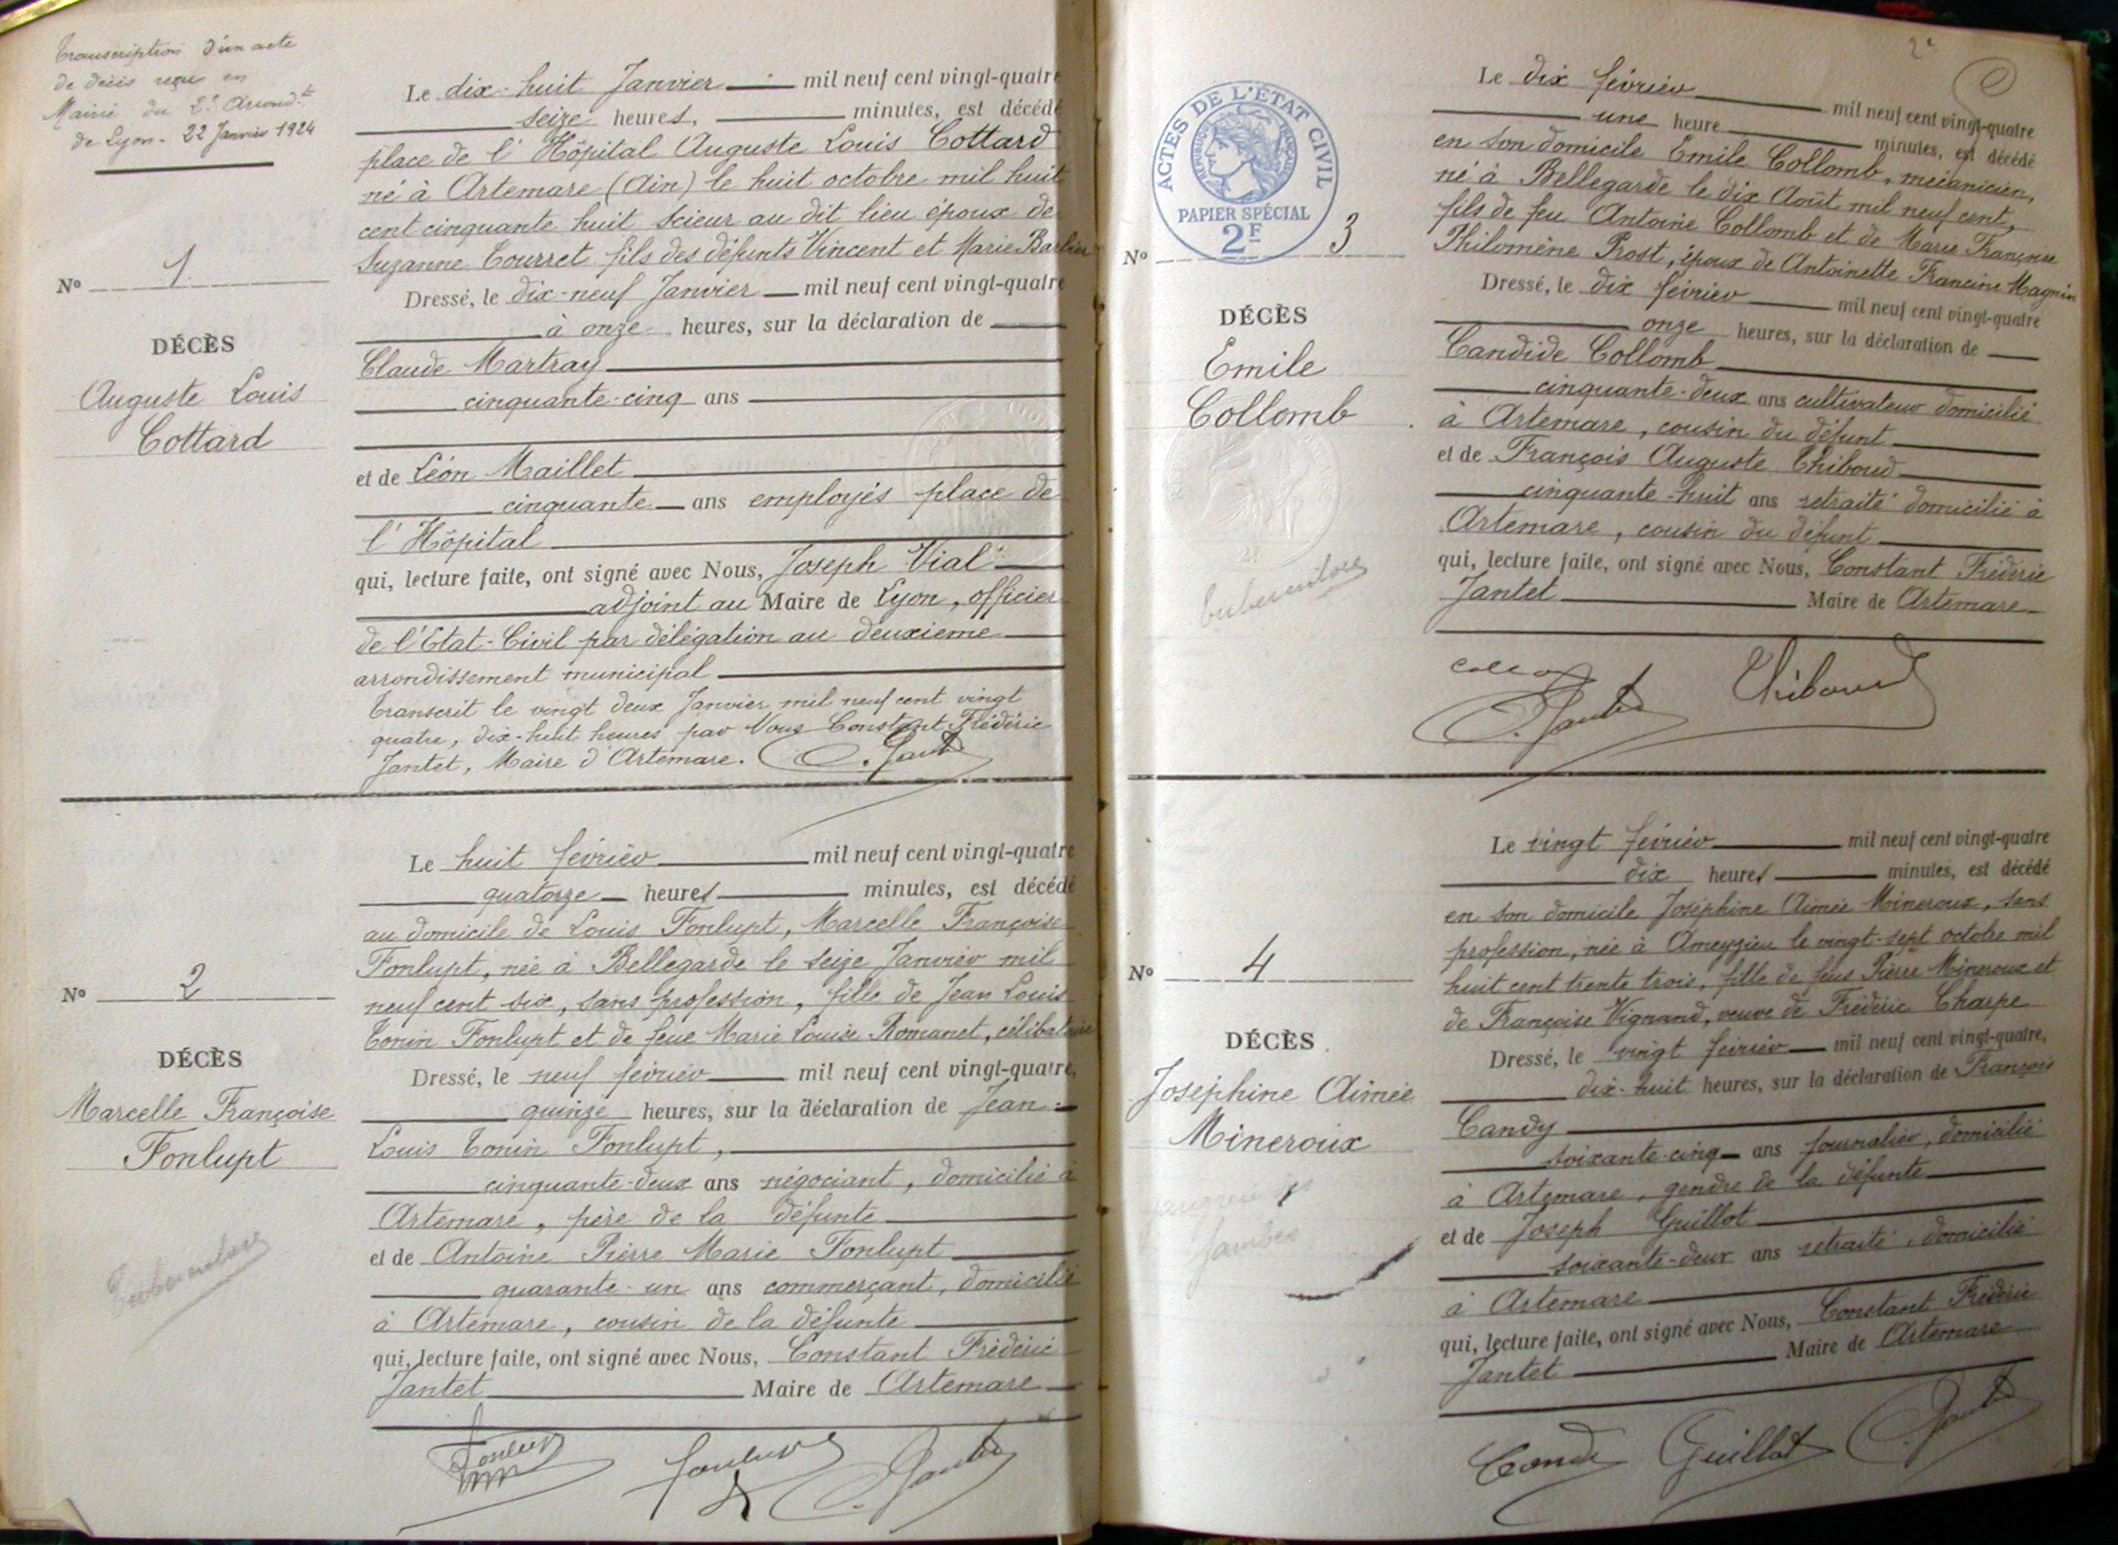 Transcription d'un acte
de décès reçu en
Mairie du 2e Arrond.t
de Lyon - 22 Janvier 1924
Nº 1
DÉCÈS
Auguste Louis
Cottard
Le dix-huit Janvier mil neuf cent vingt-quatre
seize heures, minutes, est décédé
place de l'Hôpital Auguste Louis Cottard
né à Artemare (Ain) le huit octobre mil huit
cent cinquante huit scieur au dit lieu époux de
Suzanne Tourret fils des défunts Vincent et Marie Barbier
Dressé, le dix-neuf Janvier mil neuf cent vingt-quatre
à onze heures, sur la déclaration de
Claude Martray
cinquante-cinq ans
et de Léon Maillet
cinquante ans employés place de
l'Hôpital
qui, lecture faite, ont signé avec Nous, Joseph Vial
adjoint au Maire de Lyon, officier
de l'Etat-Civil par délégation au deuxième
arrondissement municipal
Transcrit le vingt deux Janvier mil neuf cent vingt
quatre, dix-huit heures par Nous Constant Frédéric
Jantet, Maire d'Artemare. C. Jantet
Nº 2
DÉCÈS
Marcelle Françoise
Fonlupt
Tuberculose
Le huit février mil neuf cent vingt-quatre
quatorze heures minutes, est décédé
au domicile de Louis Fonlupt, Marcelle Françoise
Fonlupt, née à Bellegarde le seize Janvier mil
neuf cent six, sans profession, fille de Jean Louis
Tonin Fonlupt et de feue Marie Louise Romanet, célibataire
Dressé, le neuf février mil neuf cent vingt-quatre,
quinze heures, sur la déclaration de Jean
Louis Tonin Fonlupt,
cinquante-deux ans négociant, domicilié à
Artemare, père de la défunte
et de Antoine Pierre Marie Fonlupt
quarante-un ans commerçant, domicilié
à Artemare, cousin de la défunte
qui, lecture faite, ont signé avec Nous, Constant Frédéric
Jantet Maire de Artemare
Fonlupt Fonlupt C. Jantet
2e
ACTES DE L'ÉTAT CIVIL
RÉPUBLIQUE FRANÇAISE
PAPIER SPÉCIAL
2F
Nº 3
DÉCÈS
Emile
Collomb
tuberculose
Le dix février mil neuf cent vingt-quatre
une heure minutes, est décédé
en son domicile Emile Collomb, mécanicien,
né à Bellegarde le dix Août mil neuf cent,
fils de feu Antoine Collomb et de Marie Françoise
Philomène Prost, époux de Antoinette Francine Magnin
Dressé, le dix février mil neuf cent vingt-quatre
onze heures, sur la déclaration de
Candide Collomb
cinquante-deux ans cultivateur domicilié
à Artemare, cousin du défunt
et de François Auguste Thiboud
cinquante-huit ans retraité domicilié à
Artemare, cousin du défunt
qui, lecture faite, ont signé avec Nous, Constant Frédéric
Jantet Maire de Artemare
C. Jantet Thiboud
Nº 4
DÉCÈS
Joséphine Aimée
Mineroux
jambes
Le vingt février mil neuf cent vingt-quatre
dix heures minutes, est décédé
en son domicile Joséphine Aimée Mineroux, sans
profession, née à Ameyzieu le vingt-sept octobre mil
huit cent trente trois, fille de feus Pierre Mineroux et
de Françoise Vignand, veuve de Frédéric Charpe
Dressé, le vingt février mil neuf cent vingt-quatre,
dix-huit heures, sur la déclaration de François
Candy
soixante-cinq ans journalier, domicilié
à Artemare, gendre de la défunte
et de Joseph Guillot
soixante-deux ans retraité, domicilié
à Artemare
qui, lecture faite, ont signé avec Nous, Constant Frédéric
Jantet Maire de Artemare
Guillot C. Jantet